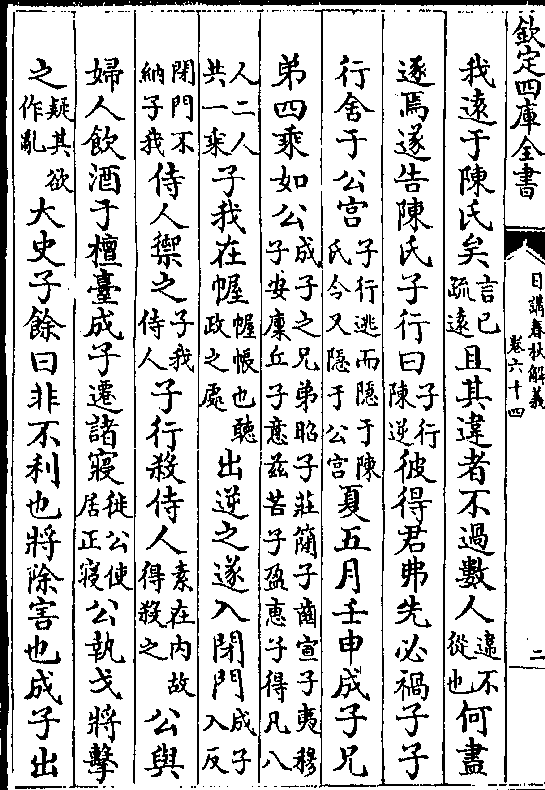 欽定四庫全書
日講春秋解義
卷六十四
二
我遠于陳氏矣言已疏遠且其違者不過數人違不從也何盡
逐焉遂告陳氏子行曰子行陳逆彼得君弗先必禍子子
行舍于公宮子行逃而隱于陳氏今又隱于公宮夏五月壬申成子兄
弟四乘如公成子之兄弟昭子莊簡子齒宣子夷穆子安廩丘子意茲芒子盈惠子得凡八
人二人共一乘子我在幄幄帳也聽政之處出逆之遂入閉門成子入反
閉門不納子我侍人禦之子我侍人子行殺侍人素在內故得殺之公與
婦人飲酒于檀臺成子遷諸寢徙公使居正寢公執戈將擊
之疑其欲作亂大史子餘曰非不利也將除害也成子出